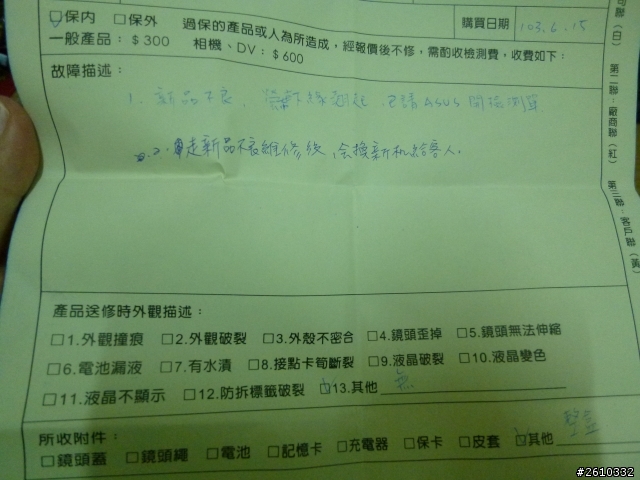 ☑保內 □保外 過保的產品或人為所造成，經報價後不修，需酌收檢測費，收費如下：
購買日期 103.6.15
一般產品：＄300 相機、DV：＄600
故障描述：
1. 新品不良，螢幕綠 已請ASUS開
2. 走新品不良維修後，會換新机給客人。
產品送修時外觀描述：
□1.外觀撞痕 □2.外觀破裂 □3.外殼不密合 □4.鏡頭歪掉 □5.鏡頭無法伸縮
□6.電池漏液 □7.有水漬 □8.接點卡筍斷裂 □9.液晶破裂 □10.液晶變色
□11.液晶不顯示 □12.防拆標籤破裂 ☑13.其他 無
所收附件：
□鏡頭蓋 □鏡頭繩 □電池 □記憶卡 □充電器 □保卡 □皮套 ☑其他 整盒
聯（白） 第二聯：廠商聯（紅） 第三聯：客戶聯（黃）
#2610332